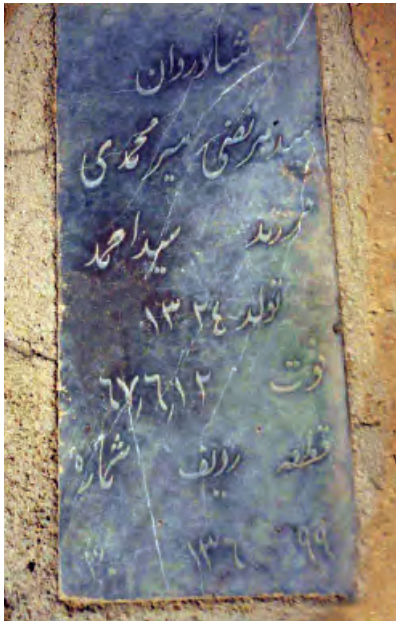 شادروان
سید مرتضی میرمحمدی
فرزند سید احمد
تولد ۱۳۲۴
فوت ۶۷٫۶٫۱۲
قطعه ردیف شماره
۹۹ ۱۳۶